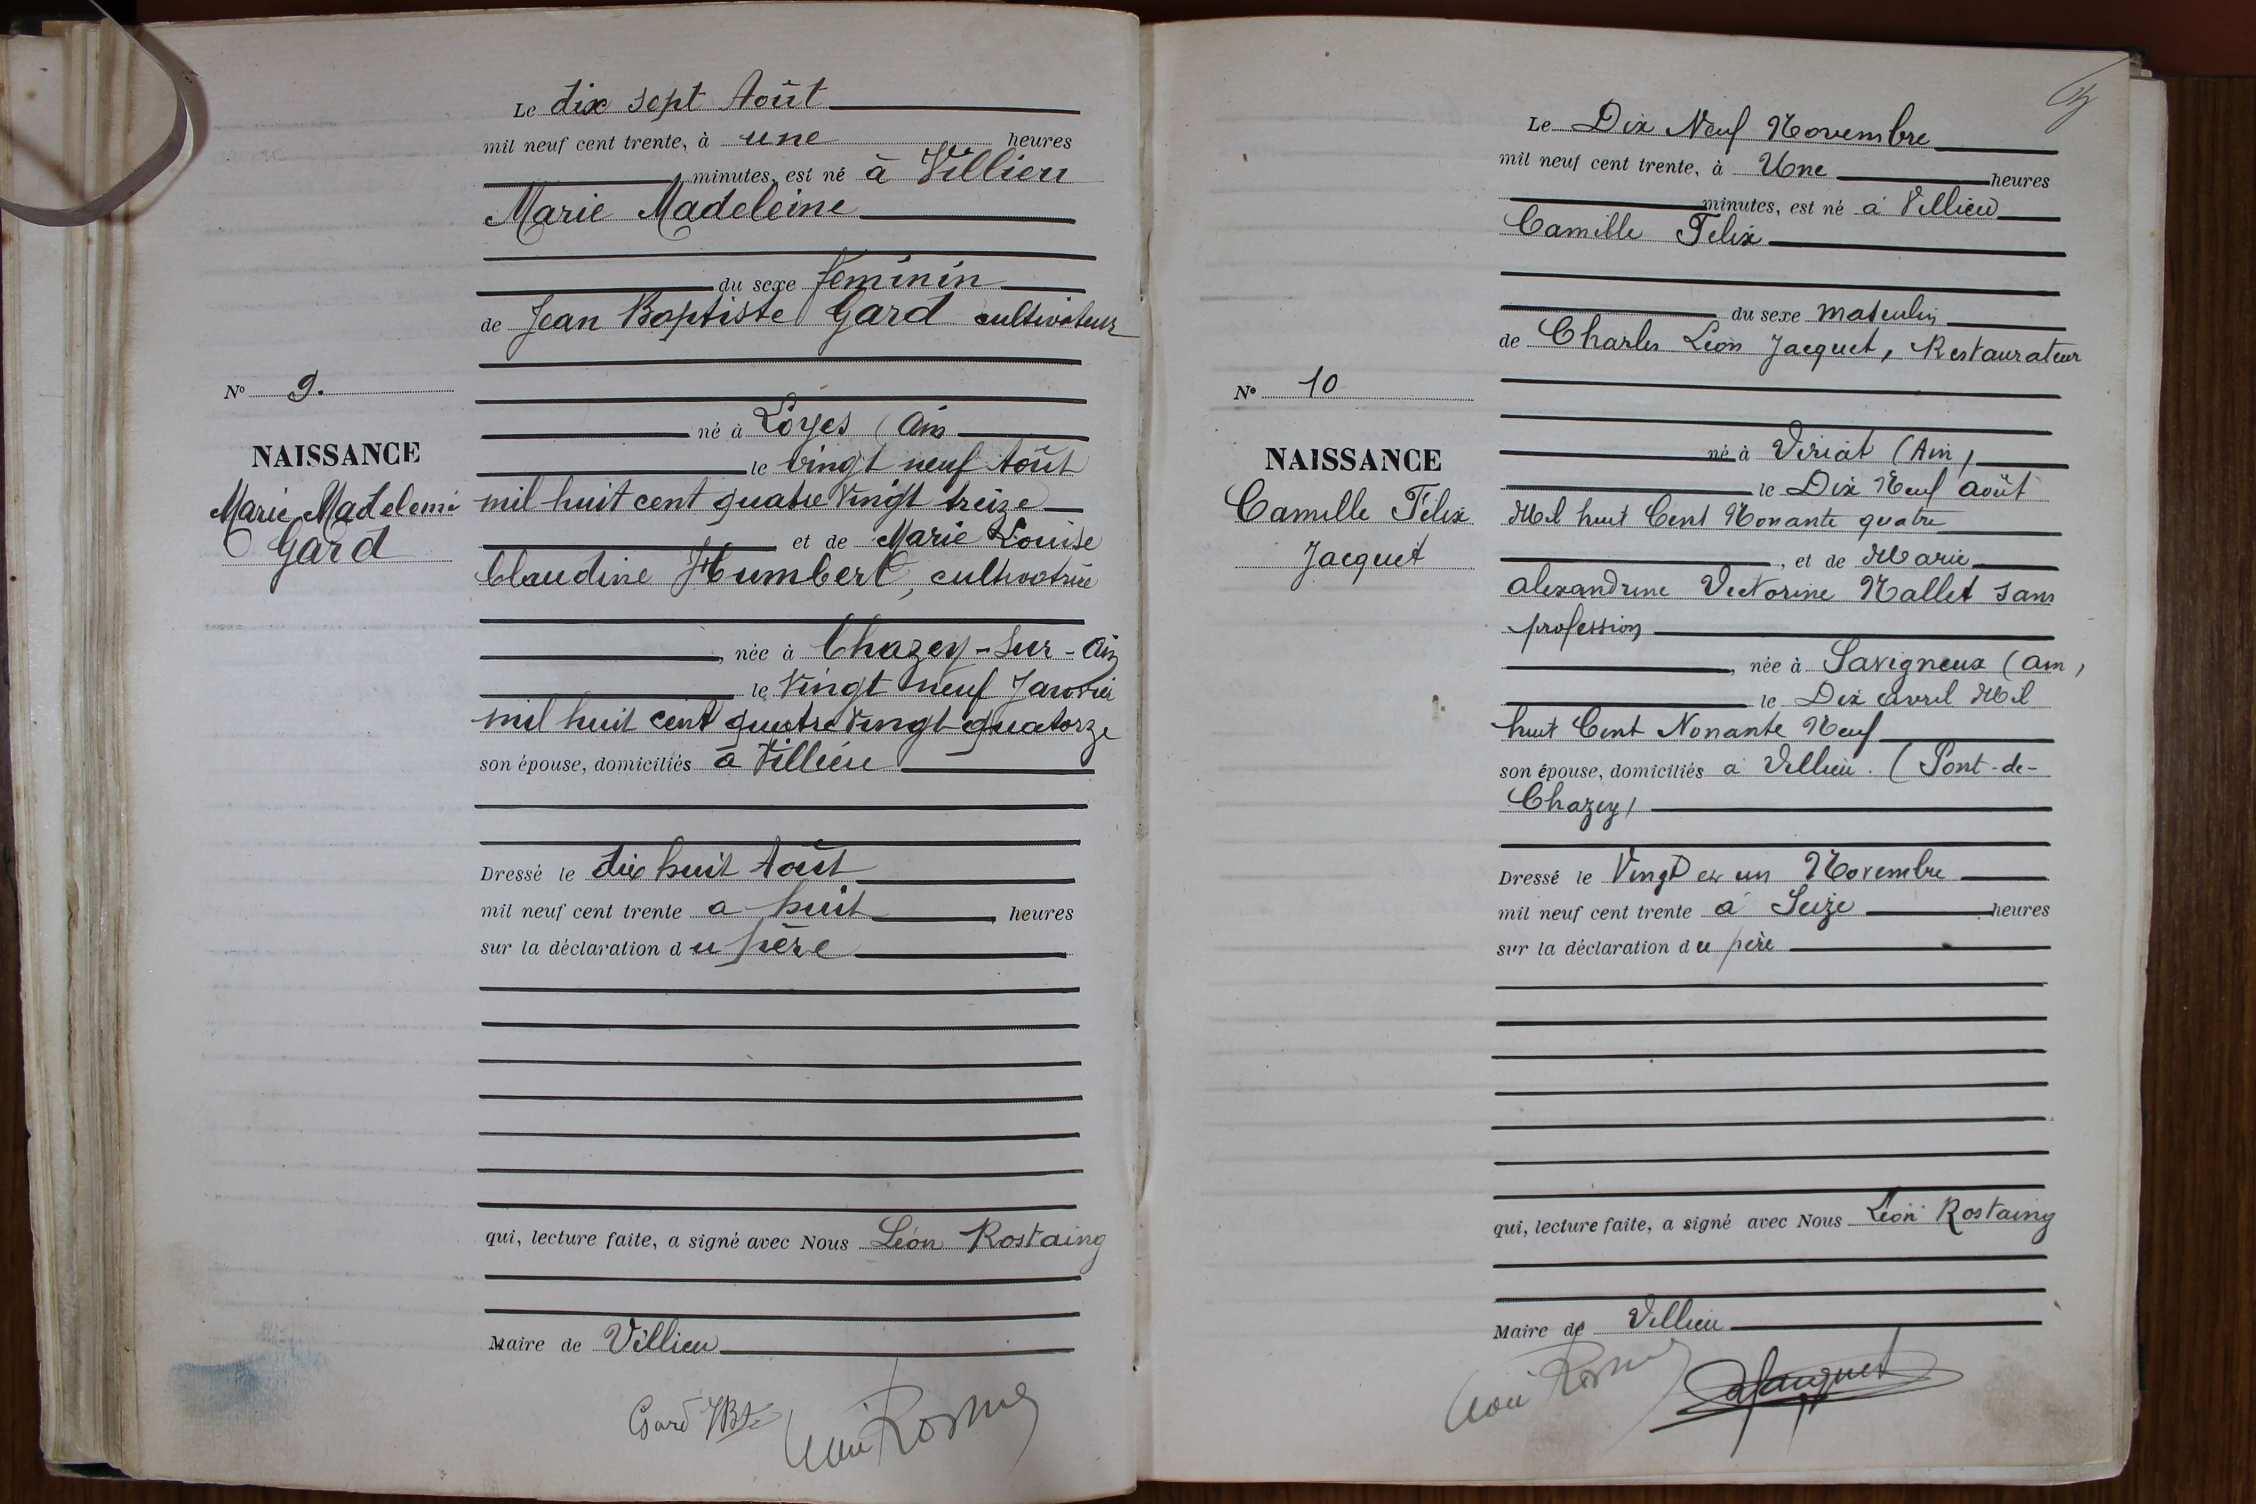 Le dix sept Août
mil neuf cent trente, à une heures
minutes, est né à Villieu
Marie Madeleine
du sexe féminin
de Jean Baptiste Gard cultivateur
né à Loyes (Ain
le vingt neuf Août
mil huit cent quatre vingt treize
et de Marie Louise
Claudine Humbert, cultivatrice
, née à Chazey-sur-Ain
le vingt neuf Janvier
mil huit cent quatre vingt quatorze
son épouse, domiciliés à Villieu
Dressé le dix huit Août
mil neuf cent trente a huit heures
sur la déclaration du père
qui, lecture faite, a signé avec Nous Léon Rostaing
Maire de Villieu
Gard JBte
N° 9.
NAISSANCE
Marie Madeleine
Gard
Le Dix Neuf Novembre
mil neuf cent trente, à Une heures
minutes, est né à Villieu
Camille Felix
du sexe masculin
de Charles Léon Jacquet, Restaurateur
né à Viriat (Ain)
le Dix Neuf août
Mil huit Cent Nonante quatre
, et de Marie
alexandrine Victorine Nallet sans
profession
, née à Savigneux (Ain)
le Dix avril Mil
huit Cent Nonante Neuf
son épouse, domiciliés à Villieu. (Pont-de-
Chazey)
Dressé le Vingt et un Novembre
mil neuf cent trente à Seize heures
sur la déclaration du père
qui, lecture faite, a signé avec Nous Léon Rostaing
Maire de Villieu
N° 10
NAISSANCE
Camille Félix
Jacquet